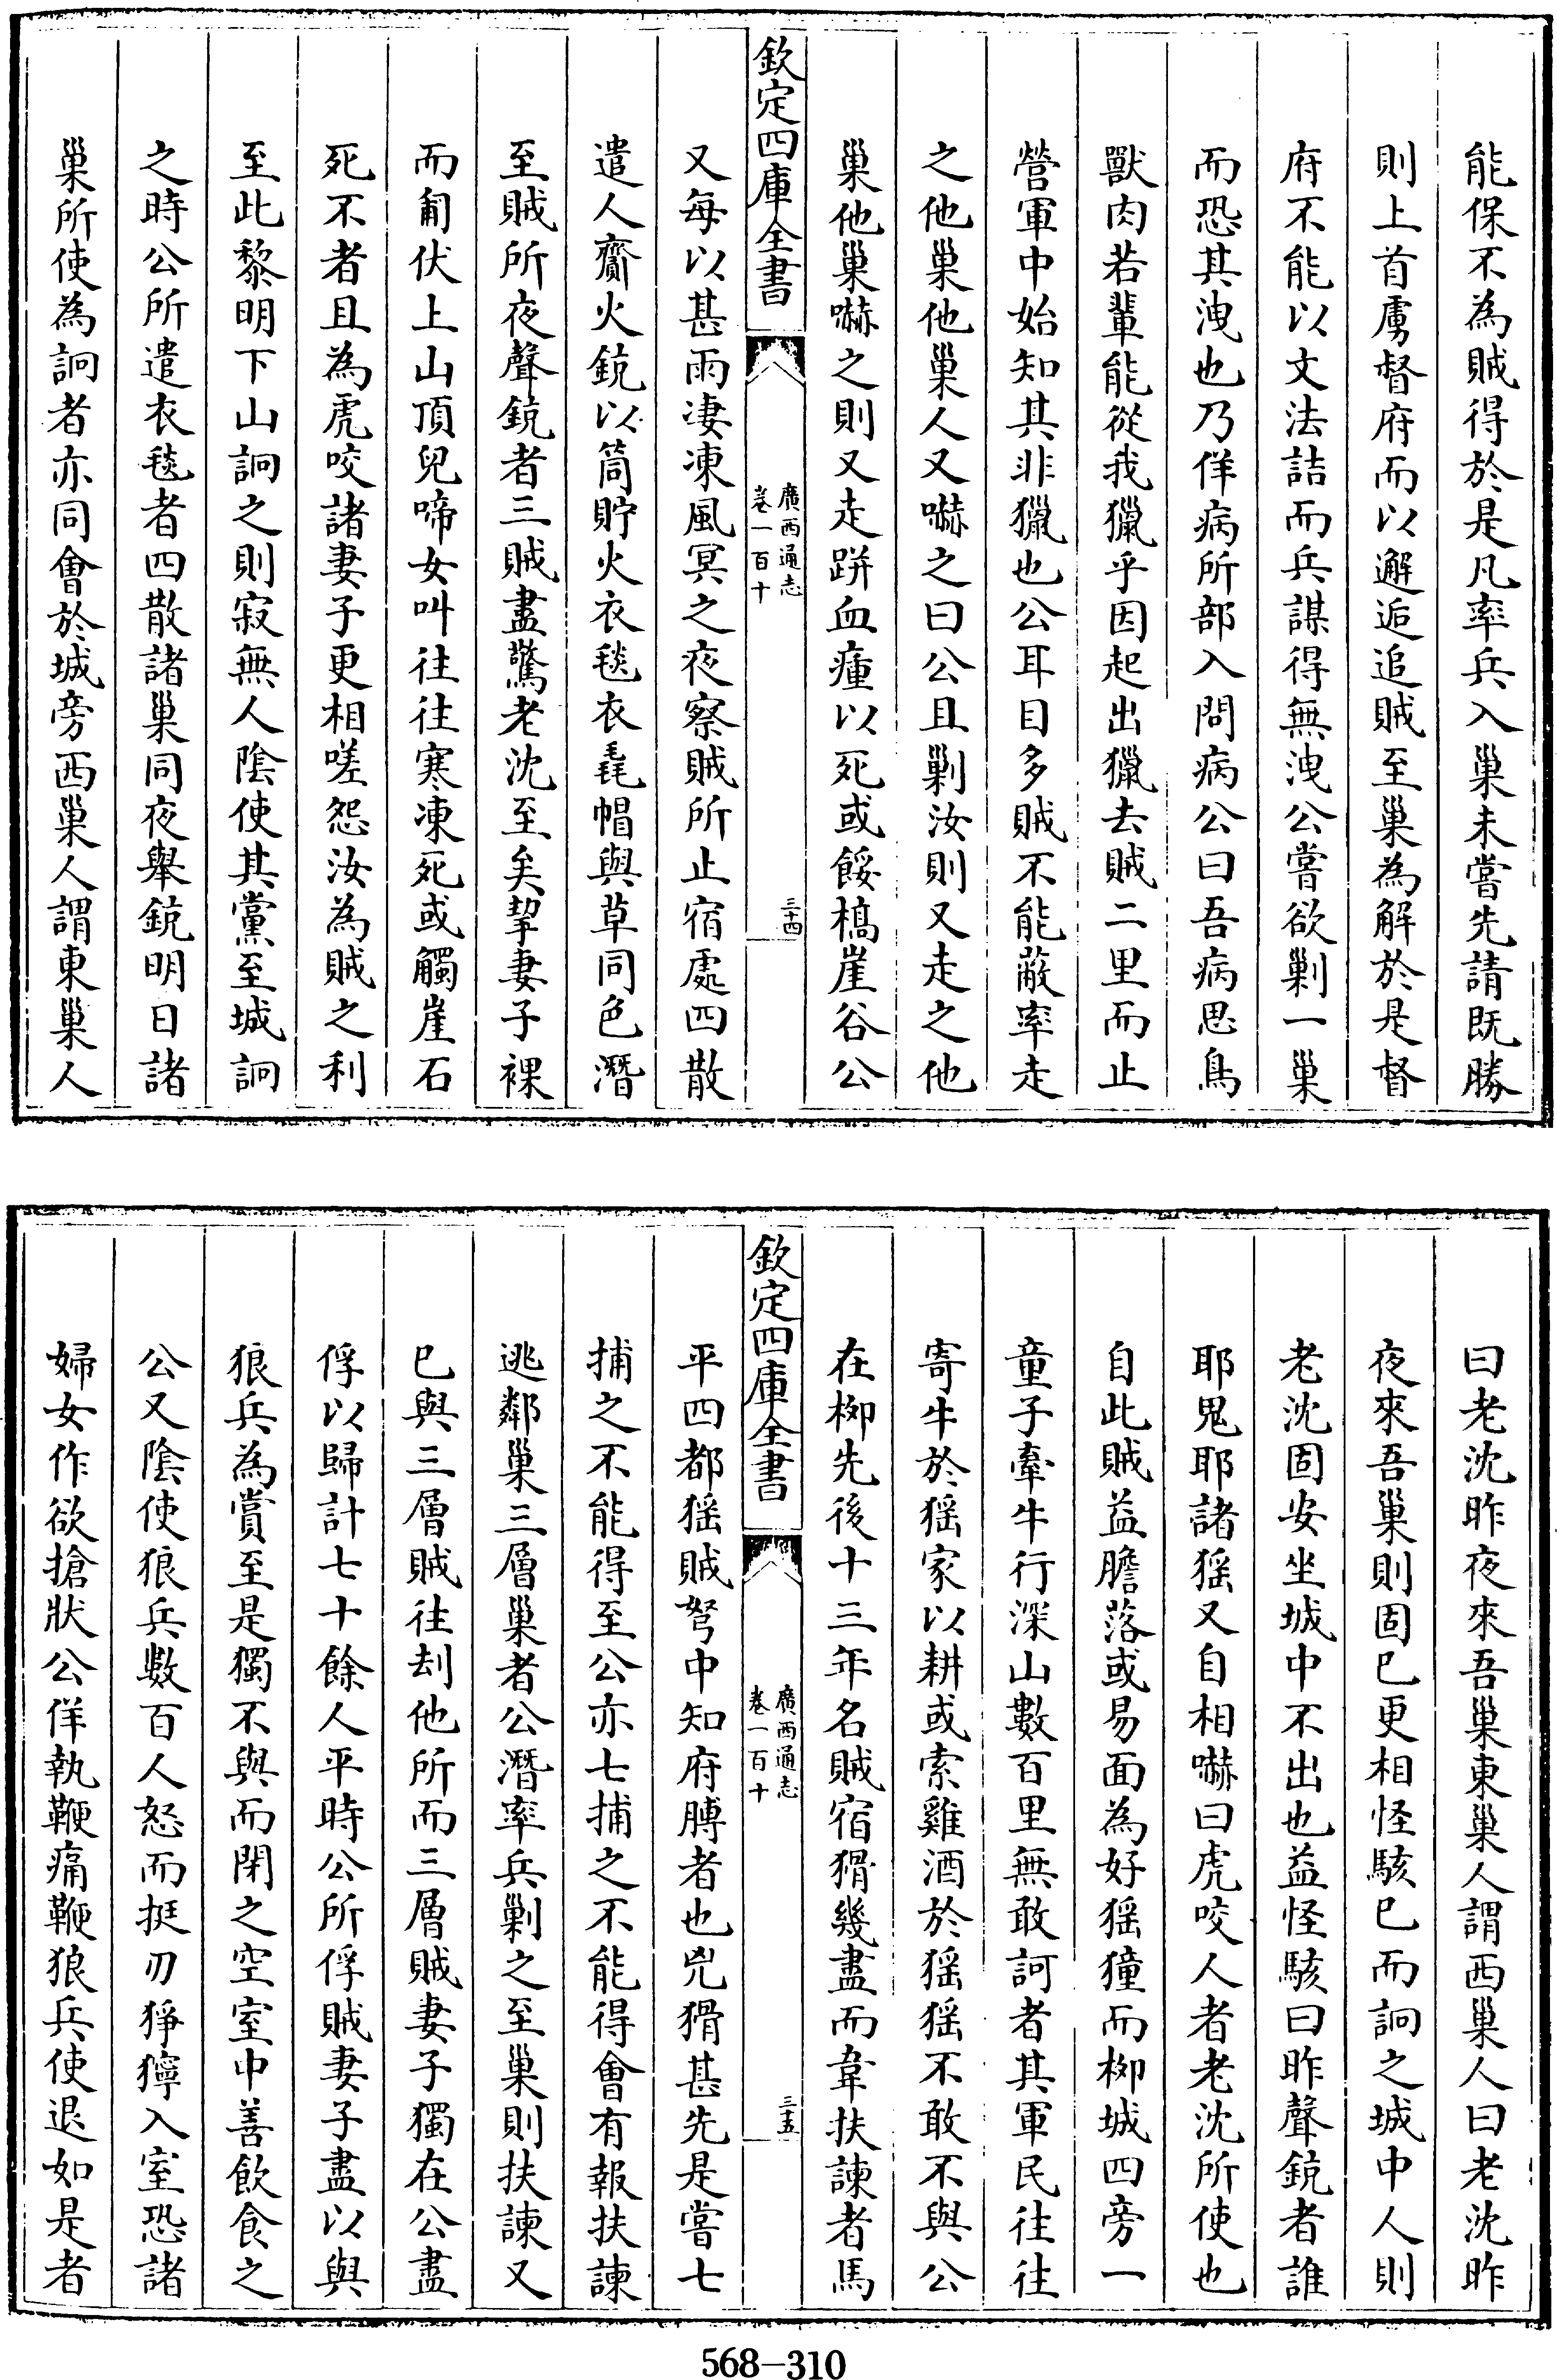 能保不為賊得於是凡率兵入巢未嘗先請既勝
則上首虜督府而以邂逅追賊至巢為解於是督
府不能以文法詰而兵謀得無洩公嘗欲剿一巢
而恐其洩也乃佯病所部入問病公曰吾病思鳥
獸肉若輩能從我獵乎因起出獵去賊二里而止
營軍中始知其非獵也公耳目多賊不能蔽率走
之他巢他巢人又嚇之曰公且剿汝則又走之他
巢他巢嚇之則又走跰血瘇以死或餒槁崖谷公
欽定四庫全書
廣西通志
卷一百十
三十四
又每以甚雨凄凍風冥之夜察賊所止宿處四散
遣人齎火銃以筒貯火衣毯衣毳帽與草同色潛
至賊所夜聲銃者三賊盡驚老沈至矣挈妻子裸
而匍伏上山頂兒啼女叫往往寒凍死或觸崖石
死不者且為虎咬諸妻子更相嗟怨汝為賊之利
至此黎明下山詗之則寂無人陰使其黨至城詗
之時公所遣衣毯者四散諸巢同夜舉銃明日諸
巢所使為詗者亦同會於城旁西巢人謂東巢人
曰老沈昨夜來吾巢東巢人謂西巢人曰老沈昨
夜來吾巢則固已更相怪駭已而詗之城中人則
老沈固安坐城中不出也益怪駭曰昨聲銃者誰
耶鬼耶諸猺又自相嚇曰虎咬人者老沈所使也
自此賊益膽落或易面為好猺獞而柳城四旁一
童子牽牛行深山數百里無敢訶者其軍民往往
寄牛於猺家以耕或索雞酒於猺猺不敢不與公
在柳先後十三年名賊宿猾幾盡而韋扶諫者馬
欽定四庫全書
廣西通志
卷一百十
三十五
平四都猺賊弩中知府膊者也兇猾甚先是嘗七
捕之不能得至公亦七捕之不能得會有報扶諫
逃鄰巢三層巢者公潛率兵剿之至巢則扶諫又
已與三層賊往刦他所而三層賊妻子獨在公盡
俘以歸計七十餘人平時公所俘賊妻子盡以與
狼兵為賞至是獨不與而閉之空室中善飲食之
公又陰使狼兵數百人怒而挺刃猙獰入室恐諸
婦女作欲搶狀公佯執鞭痛鞭狼兵使退如是者
568-310